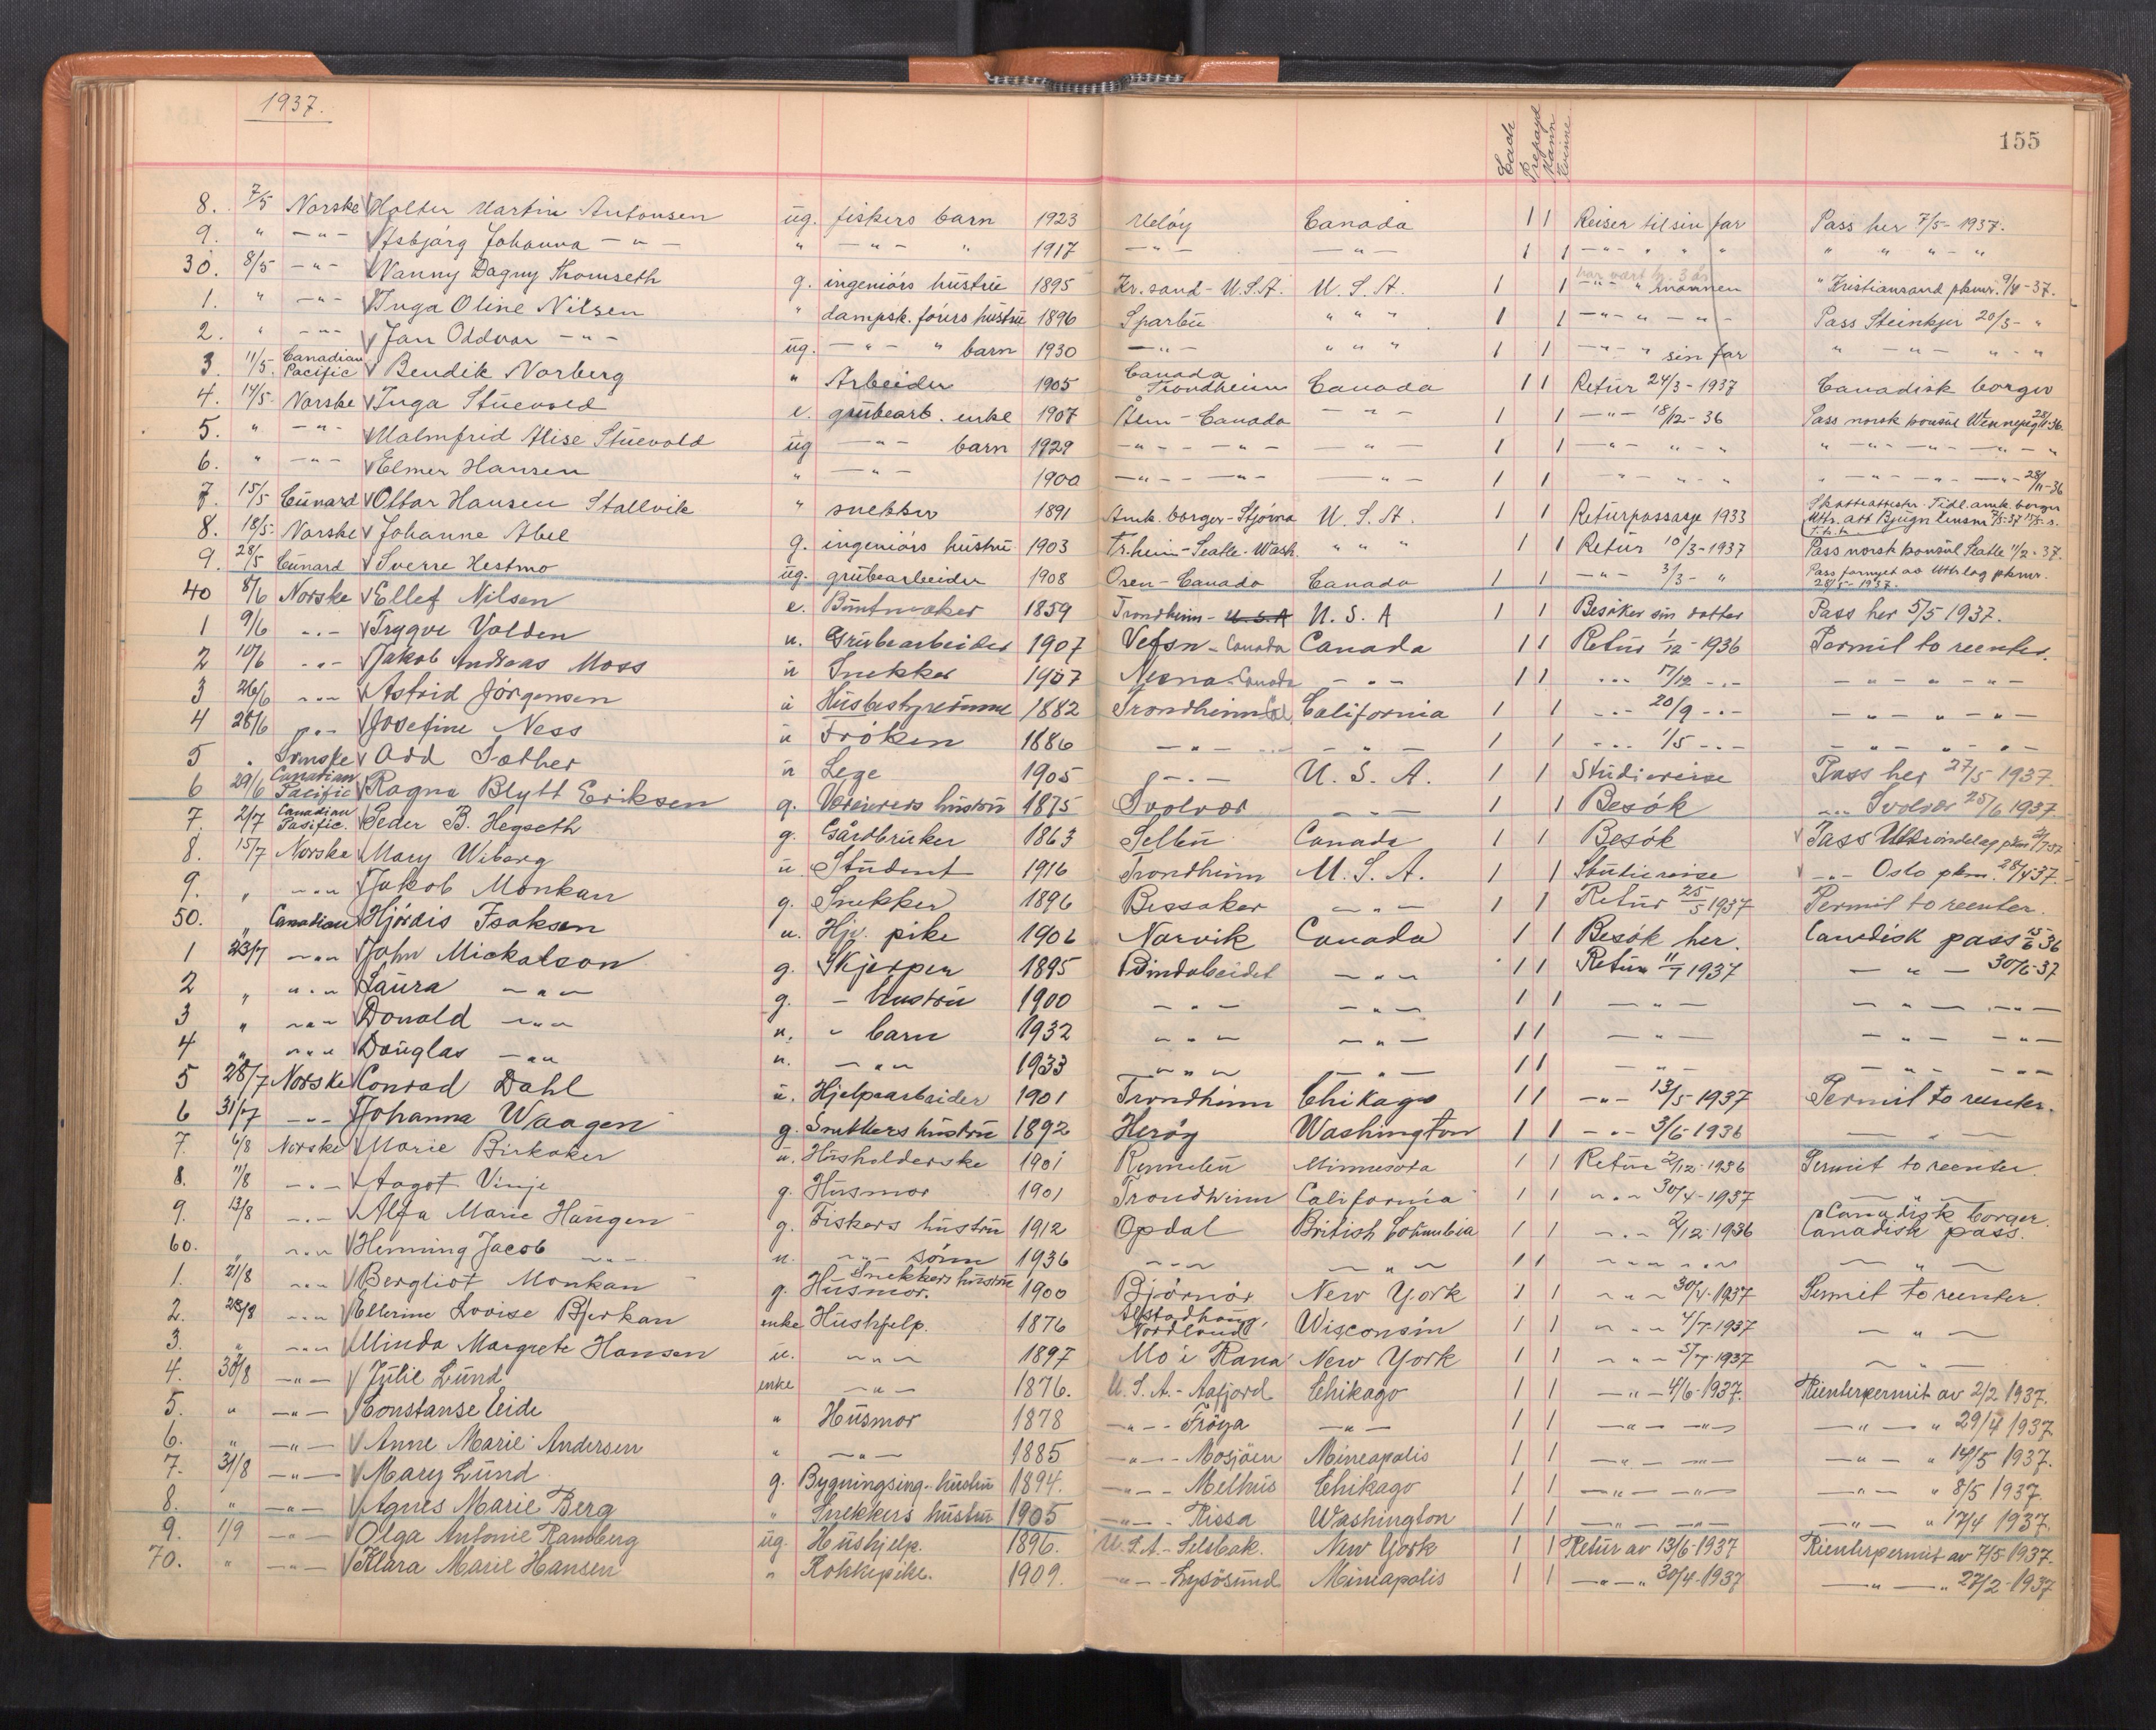 1937.
155
Cash Prepayd Mann Kvinne
8. 7/5 Norske Holter Martin Antonsen ug. fiskers barn 1923 Meløy Canada 1 1 Reiser til sin far Pass her 7/5-1937.
9. " -"- Asbjørg Johanna -"- " -"- " 1917 -"- -"- 1 1 -"- " " " " " " "
30. 8/5 -"- Nanny Dagny Thomseth g. ingeniørs hustru 1895 Kr.sand - U.S.A. U.S.A. 1 1 har vært hj. 3 år -"- " mannen " Kristiansand pkmr. 9/4-37.
1. " -"- Inga Oline Nilsen " dampsk. førers hustru 1896 Sparbu " " " 1 1 -"- " -"- Pass Steinkjer 20/3- "
2. " -"- Jan Oddvar -"- ug. -"- " barn 1930 -"- " " " 1 1 -"- " sin far " -"- " -"
3. 11/5 Canadian Pacific Bendik Norberg " Arbeider 1905 Canada Trondheim Canada 1 1 Retur 24/3-1937 Canadisk borger
4. 14/5 Norske Inga Stuevold e. grubearb. enke 1907 Ålen - Canada -"- 1 1 -"- 18/12-36 Pass norsk konsul Wennepeg 28/11-36.
5. " -"- Malmfrid Alise Stuevold ug -"- barn 1929 -"- -"- -"- 1 1 -"- " - " " -"- -"- -"- "
6. " -"- Elmer Hansen " -"- 1900 -"- -"- -"- 1 1 -"- " - " " -"- -"- -"- 28/11-36
7. 15/5 Cunard Ottar Hansen Stallvik " snekker 1891 Amk. borger - Stjørna U.S.A. 1 1 Returpassasje 1933 Skatteattestr. Tidl. amk. borger Uttr. att Bjugn lensm 7/5-37
8. 18/5 Norske Johanne Abel g. ingeniørs hustru 1903 Tr.heim - Seatle. Wash. " " " 1 1 Retur 10/3-1937 Pass norsk konsul Seatle 11/2-37.
9. 28/5 Cunard Sverre Hestmo ug. grubearbeider 1908 Osen - Canada Canada 1 1 -"- 3/3- " Pass fornyet av Uttrlag pkmr. 28/5-1937.
40 8/6 Norske Ellef Nilsen e. Buntmaker 1859 Trondheim - U.S.A U.S.A 1 1 Besøker sin datter Pass her 5/5 1937.
1 9/6 -"- Trygve Volden u. Grubearbeider 1907 Vefsn - Canada Canada 1 1 Retur 1/12-1936 Permit to reenter.
2 10/6 -"- Jakob Andreas Moss u Snekker 1907 Nesna - Canada -"- 1 1 -"- 17/12 -"- -"- " -"-
3 26/6 -"- Astrid Jørgensen u Husbestyrerinne 1882 Trondheim Cal California 1 1 -"- 20/9 -"- -"- " -"-
4 28/6 -"- Josefine Ness u Frøken 1886 -"- -"- 1 1 -"- 1/5 -"- -"- " -"-
5 " Svenske Odd Sæther u Lege 1905 -"- U.S.A. 1 1 Studiereise Pass her 27/5 1937.
6 29/6 Canadian Pacific Ragna Blytt Eriksen g. Væreiers hustru 1875 Svolvær -"- 1 1 Besøk -"- Svolvær 25/6 1937
7. 2/7 Canadian Pasific. Peder B. Hegseth g. Gårdbruker 1863 Selbu Canada 1 1 Besøk Pass Uttrøndelag pkm 2/7 37
8. 15/7 Norske Mary Wiberg u Student 1916 Trondheim U.S.A. 1 1 Studiereise -"- Oslo pkm. 28/4 37.
9. " -"- Jakob Monkan g. Snekker 1896 Bessaker -"- 1 1 Retur 25/5 1937 Permit to reenter.
50. " Canadian Hjørdis Isaksen u. Hj. pike 1906 Narvik Canada 1 1 Besøk her. Canadisk pass 15/6 36
1 23/7 -"- John Mickalson g. Skjepper 1895 Bindalseidet -"- 1 1 Retur 11/7 1937 -"- 30/6-37
2 " -"- Laura -"- g. - hustru 1900 -"- -"- 1 1 -"- -"- -"-
3 " -"- Donald -"- u. - barn 1932 -"- -"- 1 1 -"- -"- -"-
4 " -"- Douglas -"- u. -"- 1933 -"- -"- 1 1 -"- -"- -"-
5 28/7 Norske Conrad Dahl u. Hjelpearbeider 1901 Trondheim Chikago 1 1 -"- 13/5-1937 Permit to reenter.
6 31/7 -"- Johanna Waagen g. Snekkers hustru 1892 Herøy Washington 1 1 -"- 3/6-1936 -"-
7. 6/8 Norske Marie Birkaker u. Husholderske 1901 Rennebu Minnesota 1 1 Retur 2/12-1936 Permit to reenter.
8. 11/8 -"- Aagot Vinje g. Husmor 1901 Trondheim California 1 1 -"- 30/4-1937 -"-
9. 13/8 -"- Alfa Marie Haugen g. Fiskers hustru 1912 Opdal British Columbia 1 1 -"- 2/12-1936 Canadisk borger. Canadisk pass.
60. " -"- Henning Jacob -"- u. -"- sønn 1936 -"- -"- 1 1 -"- -"- -"-
1. 21/8 -"- Bergliot Monkan g. Snekkers hustru Husmor. 1900 Bjørnør New York 1 1 -"- 30/4-1937 Permit to reenter.
2. 28/8 -"- Ellerine Lovise Bjerkan enke Hushjelp. 1876 Alstadhaug, Nordland Wisconsin 1 1 -"- 4/7-1937 -"-
3. " -"- Minda Margrete Hansen u. -"- 1897 Mo i Rana New York 1 1 -"- 5/7-1937 -"-
4. 30/8 -"- Julie Lund enke -"- 1876. U.S.A. - Aafjord Chikago 1 1 -"- 4/6-1937. Rienterpermit av 2/2 1937.
5. " -"- Constanse Eide " Husmor 1878 -"- - Frøya -"- 1 1 -"- -"- -"- " 29/4 1937
6. " -"- Anne Marie Andersen " -"- 1885 -"- - Mosjøen Mineapolis 1 1 -"- -"- -"- " 14/5 1937.
7. 31/8 -"- Mary Lund g. Bygningsing. hustru 1894. -"- - Melhus Chikago 1 1 -"- -"- -"- " 8/5 1937.
8. " -"- Agnes Marie Berg " Snekkers hustru 1905 -"- - Rissa Washington 1 1 -"- -"- -"- " 17/4 1937.
9. 1/9 -"- Olga Antonie Ramberg ug. Hushjelp. 1896. U.S.A. - Selsbak. New York 1 1 Retur av 13/6-1937 Rienterpermit av 7/5-1937.
70. " -"- Klara Marie Hansen " Kokkepike. 1909. -"- - Lysøsund Mineapolis 1 1 -"- " 30/4-1937 -"- " 27/2-1937